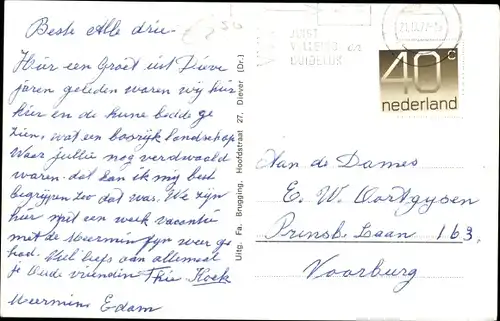 Beste Alle drie-
Hier een Groet uit Dieve
jaren geleden waren wij hier
hier en de hune bedde ge
zien, wat een bosrijk landschap
Waar jullie nog verdwaald
waren. dat kan ik mij best
begrijpen zoo dat was. We zijn
hier met een week vacantie
met de Meermin fijn weer ge
had. Veel liefs van allemaal
je Oude vriendin Thie Koek
Meermin Edam
Uitg. Fa. Brugging, Hoofdstraat 27, Diever (Dr.)
JUIST
VOLLEDIG en
DUIDELIJK
40c
nederland
Aan de Dames
E. W. Oortgysen
Prinsb. Laan 163.
Voorburg